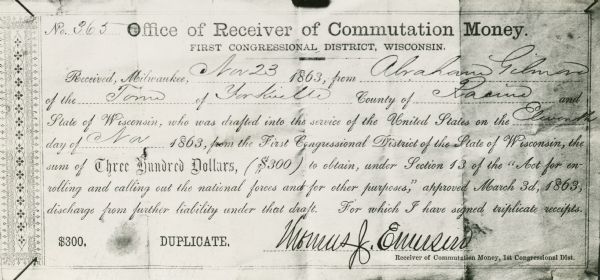 No. 365 Office of Receiver of Commutation Money.
FIRST CONGRESSIONAL DISTRICT, WISCONSIN.
Received, Milwaukee, Nov 23 1863, from Abraham Gilmore
of the Town of Yorkville County of Racine and
State of Wisconsin, who was drafted into the service of the United States on the Eleventh
day of Nov 1863, from the First Congressional District of the State of Wisconsin, the
sum of Three Hundred Dollars, ($300) to obtain, under Section 13 of the "Act for en-
rolling and calling out the national forces and for other purposes," approved March 3d, 1863,
discharge from further liability under that draft. For which I have signed triplicate receipts.
$300. DUPLICATE. Thomas J. Emerson
Receiver of Commutation Money, 1st Congressional Dist.